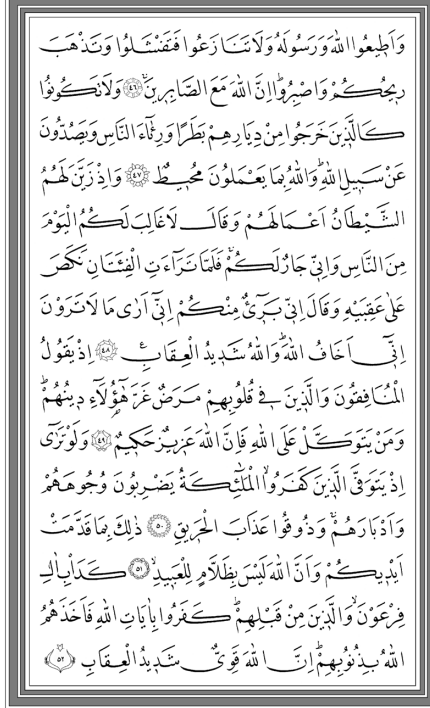 وَاَط۪يعُوا اللّٰهَ وَرَسُولَهُ وَلَا تَنَازَعُوا فَتَفْشَلُوا وَتَذْهَبَ
ر۪يحُكُمْ وَاصْبِرُواۜ اِنَّ اللّٰهَ مَعَ الصَّابِر۪ينَۚ ﴿٤٦﴾ وَلَا تَكُونُوا
كَالَّذ۪ينَ خَرَجُوا مِنْ دِيَارِهِمْ بَطَرًا وَرِئَٓاءَ النَّاسِ وَيَصُدُّونَ
عَنْ سَب۪يلِ اللّٰهِۜ وَاللّٰهُ بِمَا يَعْمَلُونَ مُح۪يطٌ ﴿٤٧﴾ وَاِذْ زَيَّنَ لَهُمُ
الشَّيْطَانُ اَعْمَالَهُمْ وَقَالَ لَا غَالِبَ لَكُمُ الْيَوْمَ
مِنَ النَّاسِ وَاِنّ۪ي جَارٌ لَكُمْۚ فَلَمَّا تَرَٓاءَتِ الْفِئَتَانِ نَكَصَ
عَلٰى عَقِبَيْهِ وَقَالَ اِنّ۪ي بَر۪ٓيءٌ مِنْكُمْ اِنّ۪ٓي اَرٰى مَا لَا تَرَوْنَ
اِنّ۪ٓي اَخَافُ اللّٰهَۜ وَاللّٰهُ شَد۪يدُ الْعِقَابِ۟ ﴿٤٨﴾ اِذْ يَقُولُ
الْمُنَافِقُونَ وَالَّذ۪ينَ ف۪ي قُلُوبِهِمْ مَرَضٌ غَرَّ هٰٓؤُ۬لَٓاءِ د۪ينُهُمْۜ
وَمَنْ يَتَوَكَّلْ عَلَى اللّٰهِ فَاِنَّ اللّٰهَ عَز۪يزٌ حَك۪يمٌ ﴿٤٩﴾ وَلَوْ تَرٰٓى
اِذْ يَتَوَفَّى الَّذ۪ينَ كَفَرُواۙ الْمَلٰٓئِكَةُ يَضْرِبُونَ وُجُوهَهُمْ
وَاَدْبَارَهُمْۚ وَذُوقُوا عَذَابَ الْحَر۪يقِ ﴿٥٠﴾ ذٰلِكَ بِمَا قَدَّمَتْ
اَيْد۪يكُمْ وَاَنَّ اللّٰهَ لَيْسَ بِظَلَّامٍ لِلْعَب۪يدِۙ ﴿٥١﴾ كَدَأْبِ اٰلِ
فِرْعَوْنَۙ وَالَّذ۪ينَ مِنْ قَبْلِهِمْۜ كَفَرُوا بِاٰيَاتِ اللّٰهِ فَاَخَذَهُمُ
اللّٰهُ بِذُنُوبِهِمْۜ اِنَّ اللّٰهَ قَوِيٌّ شَد۪يدُ الْعِقَابِ ﴿٥٢﴾